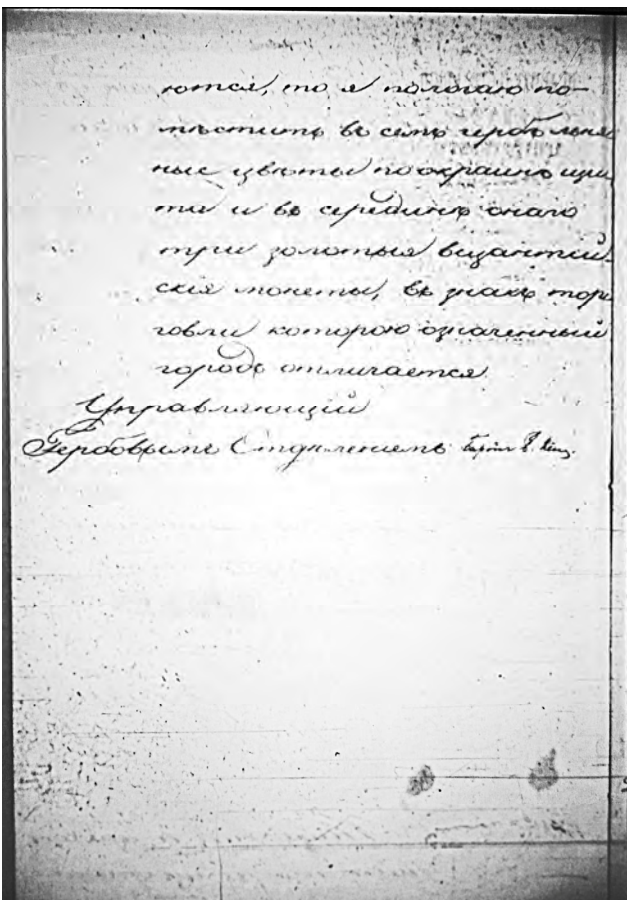 ются, то я полагаю по-
мѣстить въ семъ гербѣ льня
ные цвѣты по окраинѣ щи
та и въ серединѣ онаго
три золотыя византій-
скія монеты, въ знакъ тор
говли которою означенный
городъ отличается.
Управляющій
Гербовымъ Отдѣленіемъ Баронъ Б. Кене.